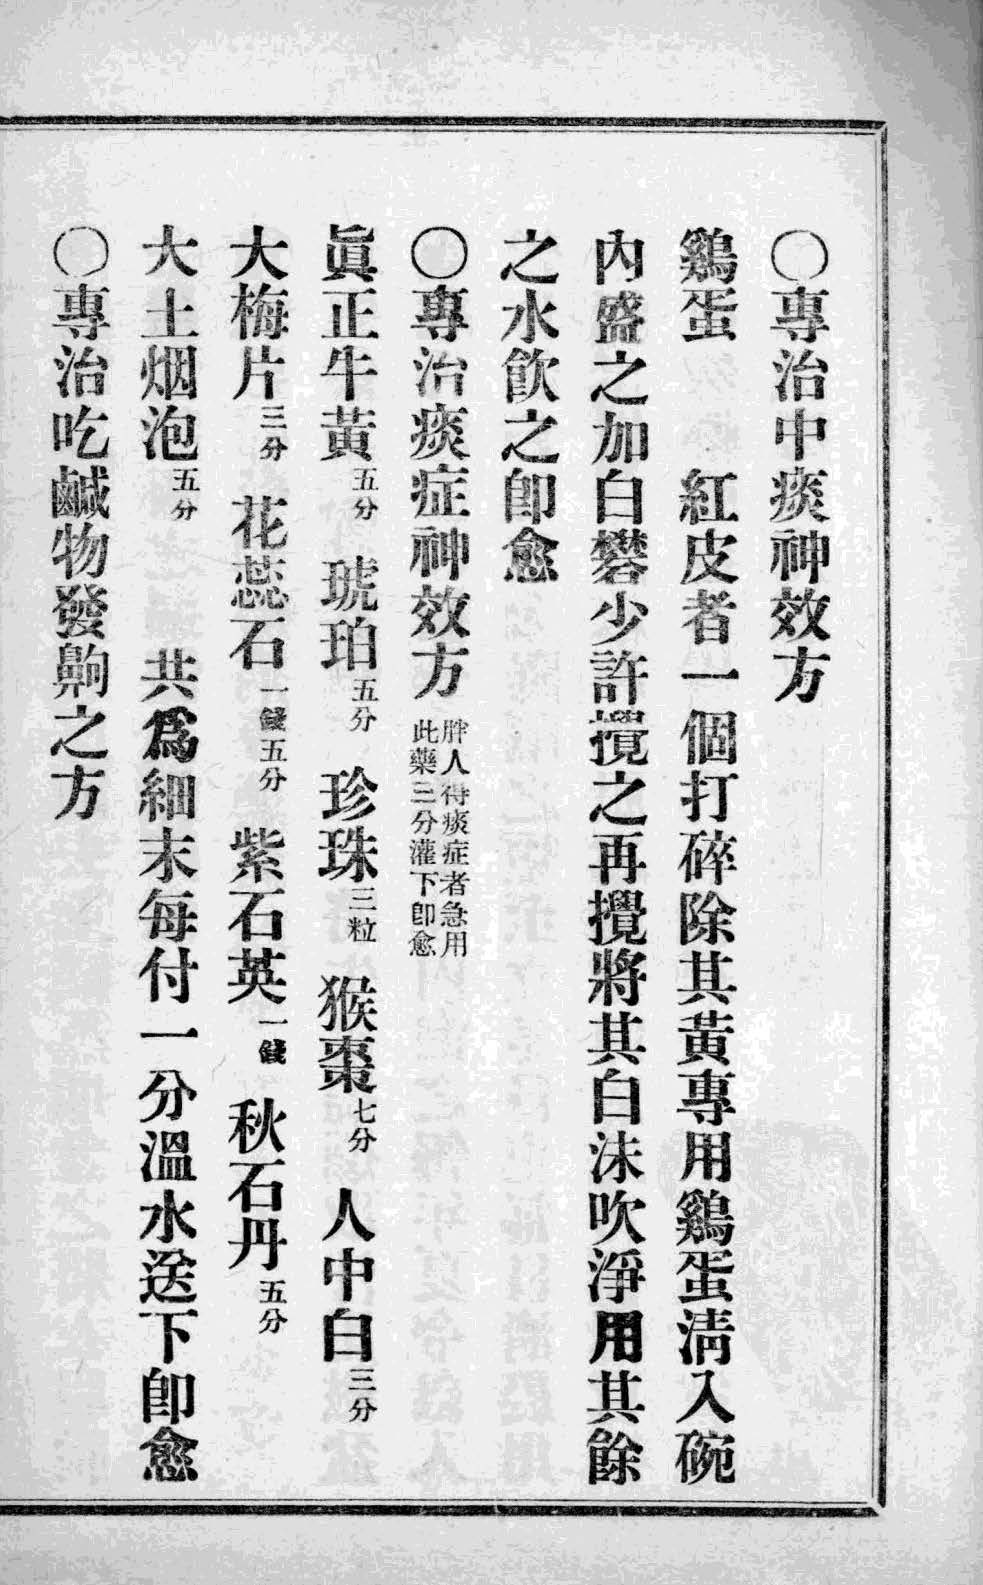 〇專治中痰神效方
鷄蛋　紅皮者一個打碎除其黃專用鷄蛋淸入碗
內盛之加白礬少許攪之再攪將其白沫吹淨用其餘
之水飮之卽愈
〇專治痰症神效方 胖人得痰症者急用
此藥三分灌下卽愈
眞正牛黃五分　琥珀五分　珍珠三粒　猴棗七分　人中白三分
大梅片三分　花蕊石一錢五分　紫石英一錢　秋石丹五分
大土烟泡五分　共爲細末每付一分溫水送下卽愈
〇專治吃鹹物發齁之方